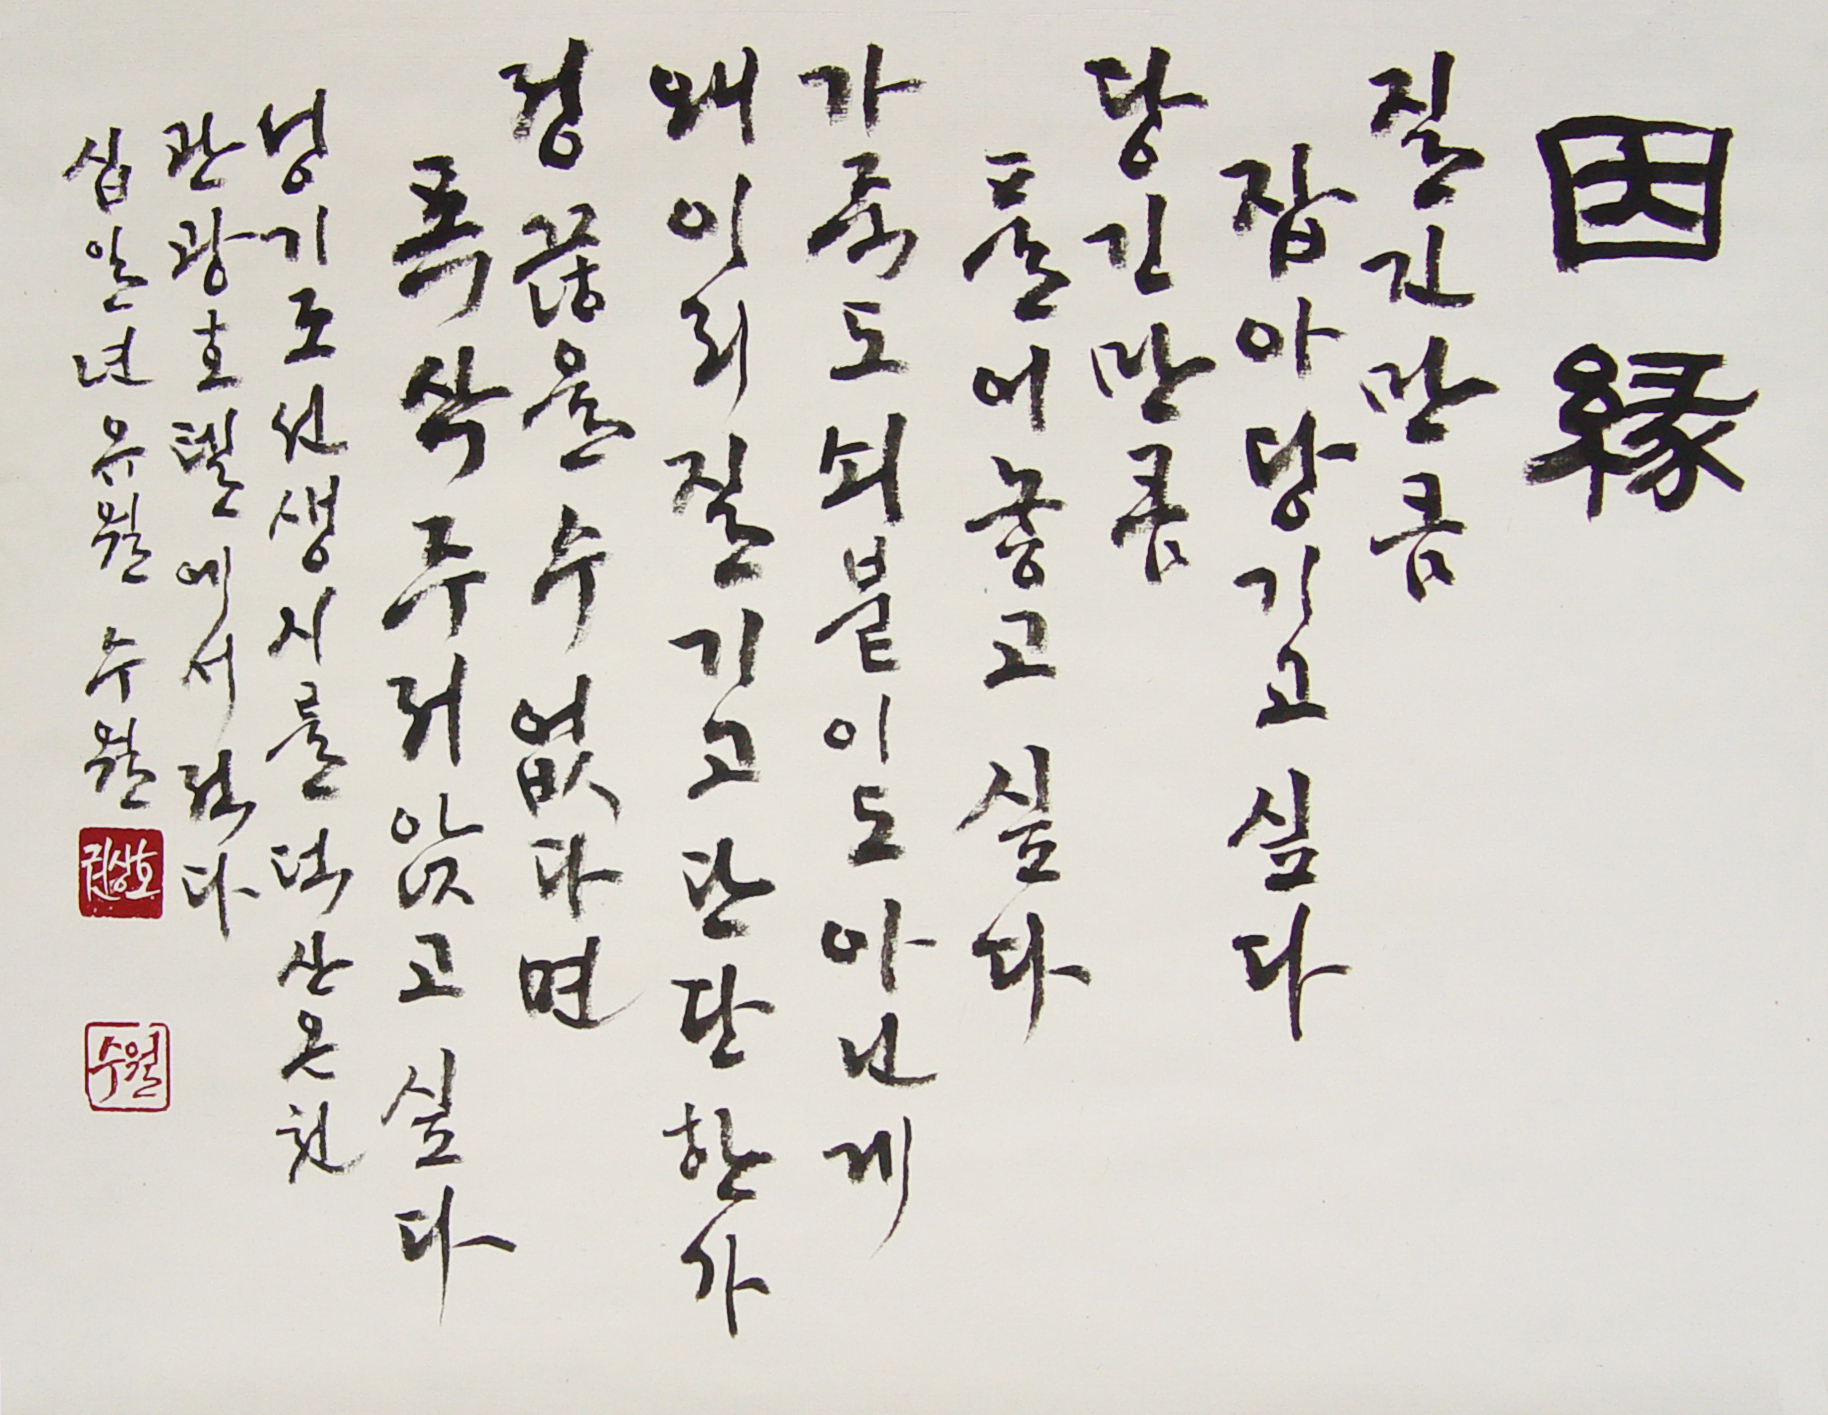 因緣
질긴만큼
잡아당기고 싶다
당긴만큼
풀어놓고 싶다
가죽도 쇠붙이도 아닌게
왜 이리 질기고 단단한가
정 끊을 수 없다면
폭삭 주저앉고 싶다
성기조선생시를 덕산온천
관광호텔에서 적다
십일년 유월 수월
권상호
수월